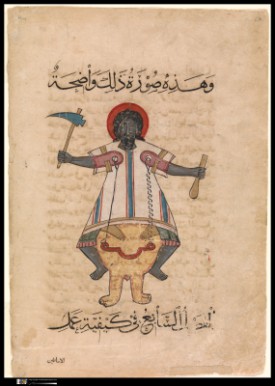 وَهَذِهِ صُوْرَةُ ذَلِكَ وَاضِحَةٌ
الفصل السَّابع في كيفية عمل